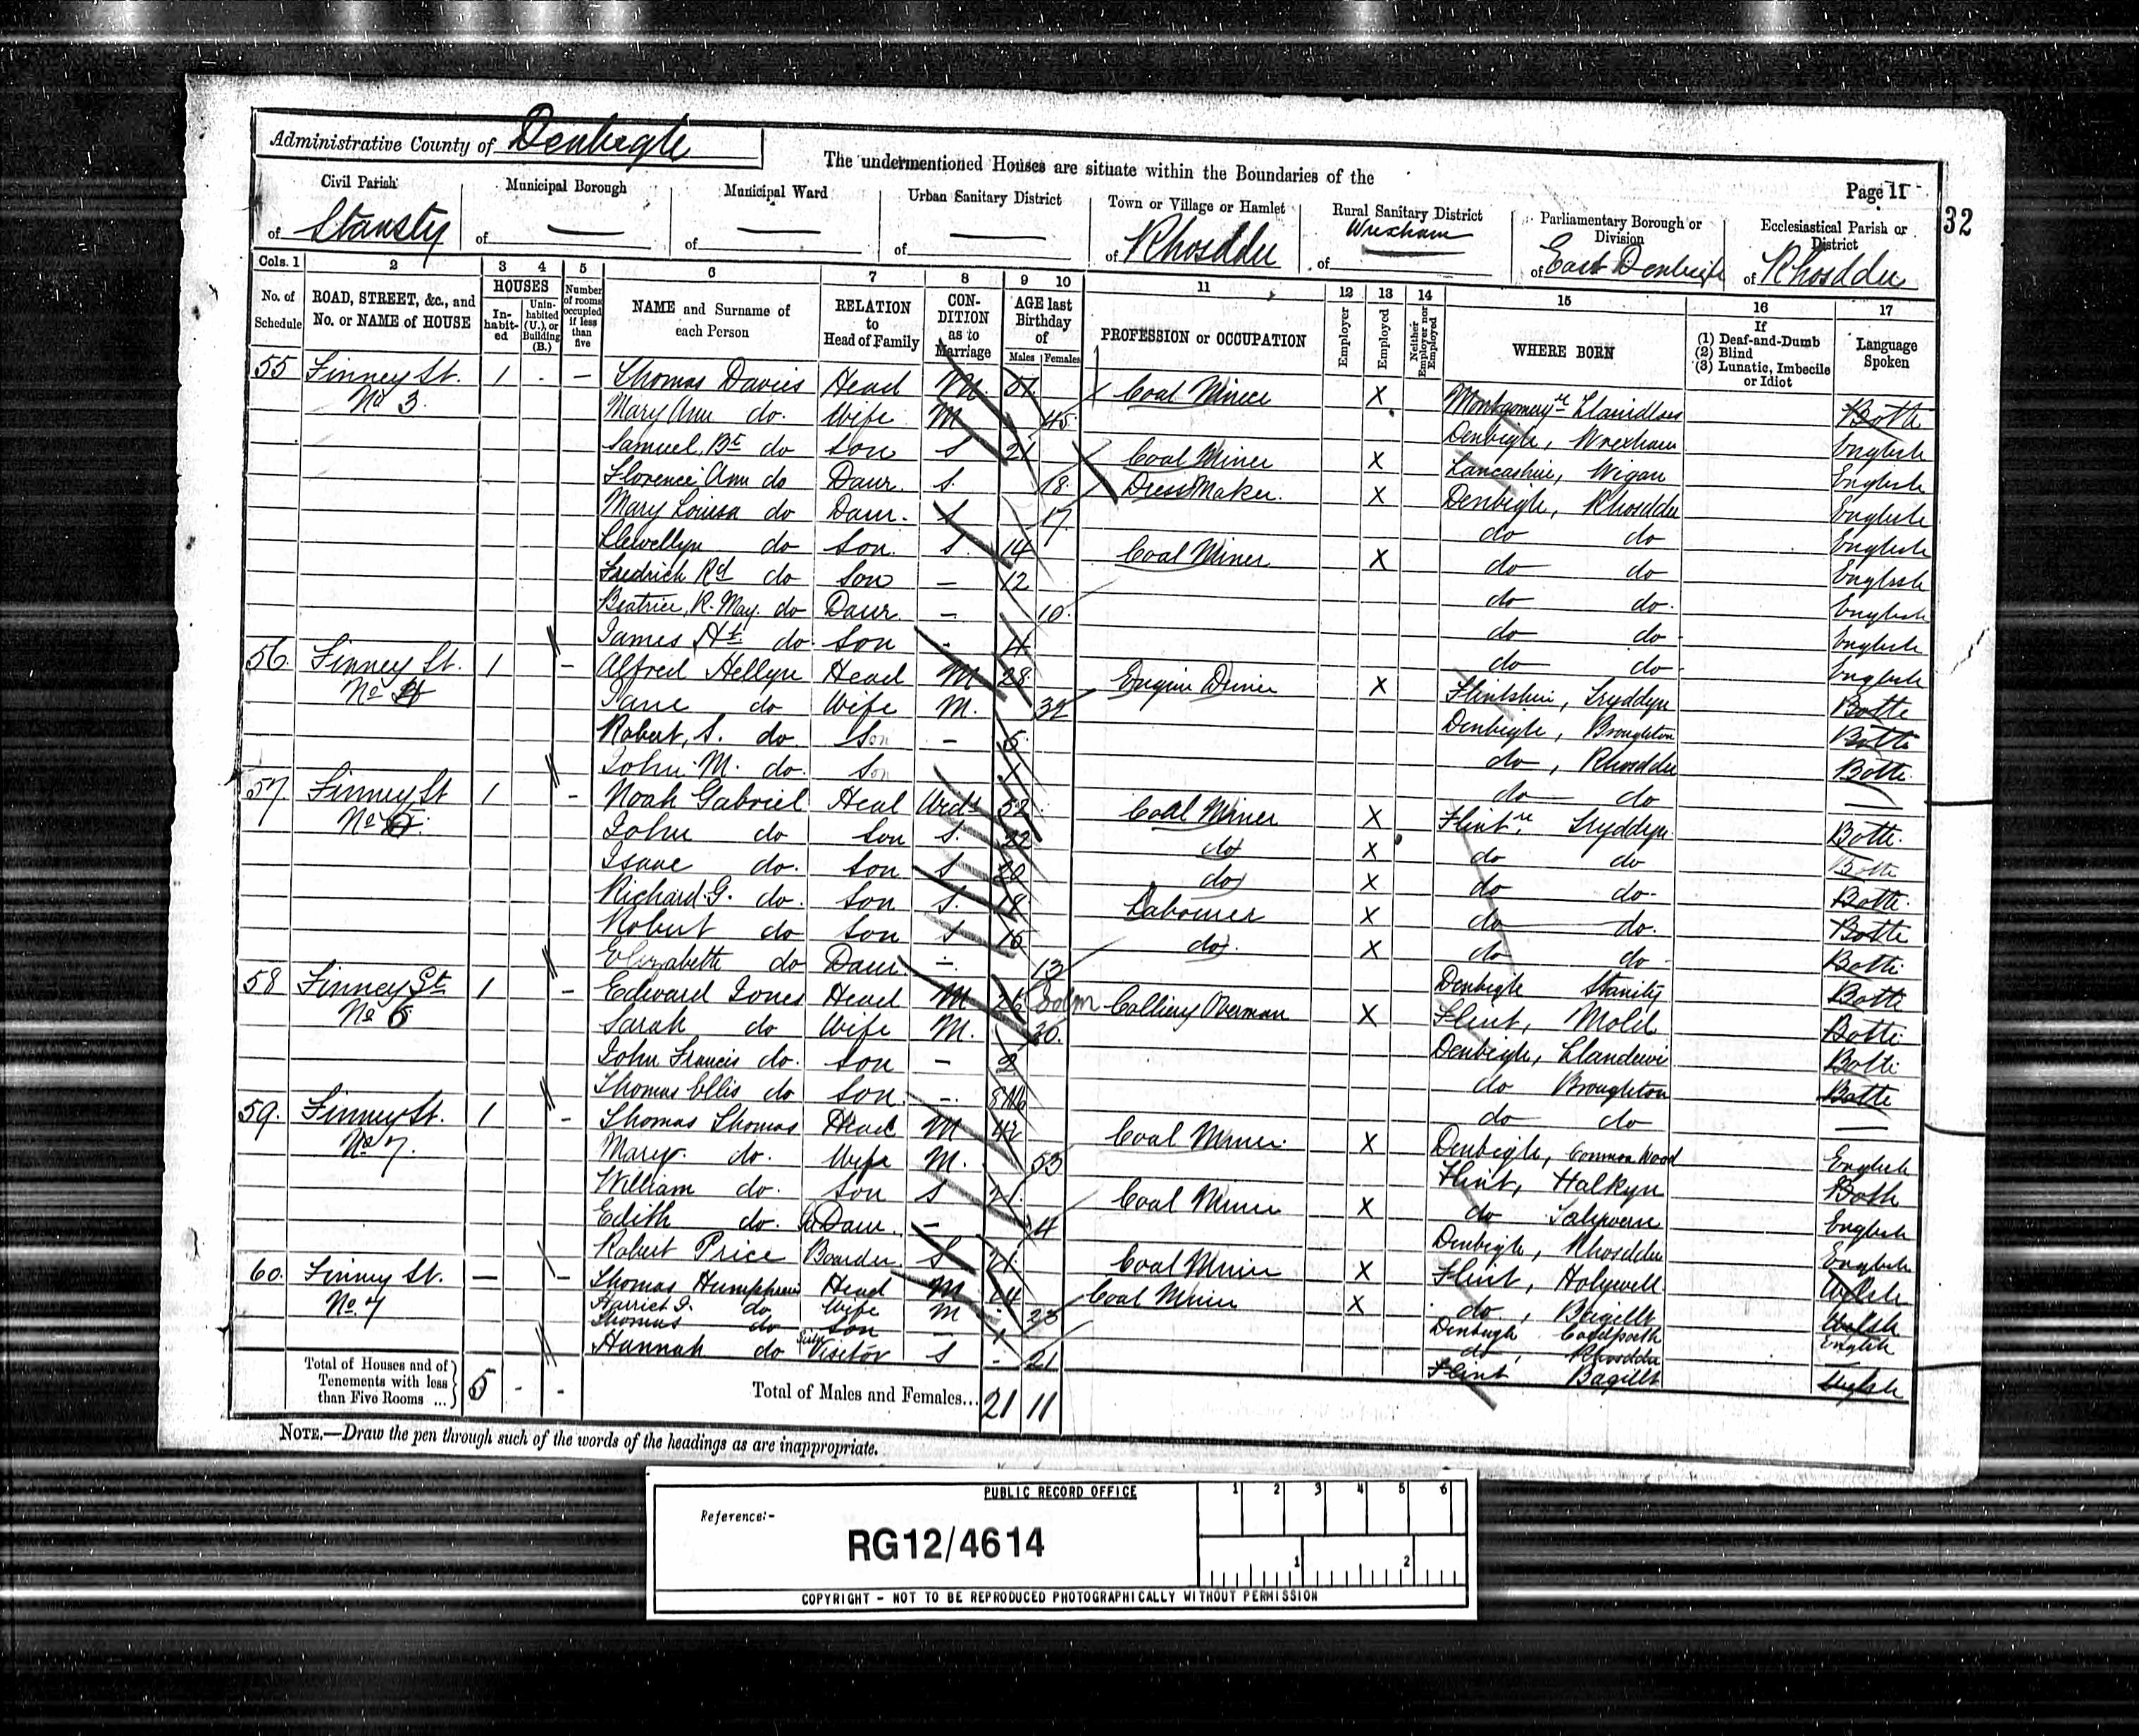 Administrative County of Denbigh
The undermentioned Houses are situate within the Boundaries of the
Page 11
32
Civil Parish of Stansty
Municipal Borough of —
Municipal Ward of —
Urban Sanitary District of —
Town or Village or Hamlet of Rhosddu
Rural Sanitary District of Wrexham
Parliamentary Borough or Division of East Denbigh
Ecclesiastical Parish or District of Rhosddu
Cols. 1 2 3 4 5 6 7 8 9 10 11 12 13 14 15 16 17
No. of Schedule
ROAD, STREET, &c., and No. or NAME of HOUSE
HOUSES
Inhabited
Uninhabited (U.), or Building (B.)
Number of rooms occupied if less than five
NAME and Surname of each Person
RELATION to Head of Family
CONDITION as to Marriage
AGE last Birthday of
Males Females
PROFESSION or OCCUPATION
Employer
Employed
Neither Employer nor Employed
WHERE BORN
If (1) Deaf-and-Dumb (2) Blind (3) Lunatic, Imbecile or Idiot
Language Spoken
55 Finney St. 1 - Thomas Davies Head M 51 Coal Miner X Montgomery re Llanidloes Both
No 3. Mary Ann do. Wife M 45 Denbigh, Wrexham English
Samuel Bt do Son S 21 Coal Miner X Lancashire, Wigan English
Florence Ann do Daur. S. 18 Dress Maker. X Denbigh, Rhosddu English
Mary Louisa do Daur. S 17 do do English
Llewellyn do Son. S. 14 Coal Miner X do do English
Fredrick Rd do Son — 12 do do. English
Beatrice R. May. do Daur. — 10. do do English
James Ht. do Son - 4 do do English
56. Finney St. 1 - Alfred Hellyn Head M 28 Engine Driver X Flintshire, Tryddyn Both
No 4 Jane do Wife M. 32 Denbigh, Broughton Both
Robert, S. do. Son — 5 do, Rhosddu Both
John M. do. Son 1 do do —
57. Finney St 1 - Noah Gabriel Head Widr 52 Coal Miner X Flint re Tryddyn Both
No 5 John do Son S. 22 do X do do Both
Isaac do. Son S 20 do X do do. Both
Richard G. do. Son S. 18 Labourer X do do. Both
Robert do Son S 15 do. X do do Both
Elizabeth do Daur — 13 Denbigh Stansty Both
58 Finney St. 1 - Edward Jones Head M 26 Colliery Overman X Flint, Mold Both
No 6 Sarah do Wife M. 30. Denbigh, Both
John Francis do. Son — 2 do Broughton Both
Thomas Ellis do Son - do do —
59. Finney St. 1 - Thomas Thomas Head M 42 Coal Miner X Denbigh, Common Wood English
No 7. Mary do. Wife M. 53 Flint, Halkyn Both
William do. Son S 21 Coal Miner X do English
Edith do. Daur. — 4 Denbigh, Rhosddu English
Robert Price Boarder S 21 Coal Miner X Flint, Holywell Welsh
60. Finney St. — - Thomas Humphreys Head M 24 Coal Miner X do, Bagillt Welsh
No. 7 Harriet J. do Wife M 23 Denbigh English
Thomas do Son — 1 do, Rhosddu
Hannah do Sister Visitor S - 21 Flint Bagillt
Total of Houses and of Tenements with less than Five Rooms ... 5 - -
Total of Males and Females... 21 11
NOTE.—Draw the pen through such of the words of the headings as are inappropriate.
PUBLIC RECORD OFFICE
1 2 3 4 5 6
Reference:-
RG12/4614
1 2
COPYRIGHT - NOT TO BE REPRODUCED PHOTOGRAPHICALLY WITHOUT PERMISSION